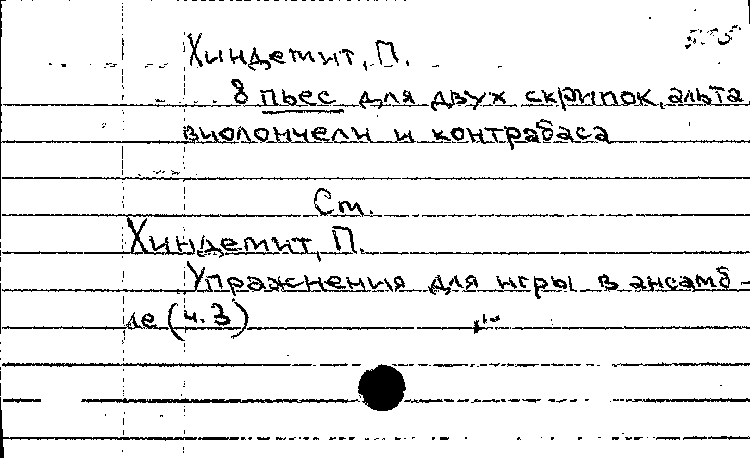 Хиндемит, П.
8 пьес для двух скрипок, альта
виолончели и контрабаса
Ст.
Хиндемит, П.
Упражнения для игры в ансамб-
ле (ч. 3)